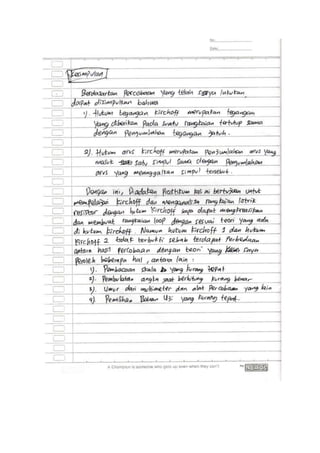 No.
Date.
Kesimpulan
Berdasarkan Percobaan yang telah saya lakukan.
dapat disimpulkan bahwa
1). Hukum tegangan Kirchoff merupakan tegangan
yang diberikan Pada suatu rangkaian tertutup sama
dengan Penjumlahan tegangan jatuh.
2). Hukum arus Kirchoff merupakan Penjumlahan arus yang
masuk satu simpul sama dengan Penjumlahan
arus yang meninggalkan simpul tersebut.
Dengan ini, Diadakan Praktikum kali ini bertujuan untuk
mempelajari Kirchoff dan menganalisa rangkaian listrik
resistor dengan hukum Kirchoff juga dapat
dan membuat rangkaian loop dengan sesuai teori yang ada
di hukum Kirchoff. Namun hukum Kirchoff 1 dan hukum
Kirchoff 2 tidak terbukti sebab terdapat Perbedaan
antara hasil Percobaan dengan teori yang saya
Peroleh beberapa hal, antara lain :
1). Pembacaan skala yang kurang tepat
2). Pembulatan angka saat berhitung kurang benar
3). Umur dari multimeter dan alat Percobaan yang lain
4). Pemilihan Batas Uji yang kurang tepat.
A Champion is someone who gets up even when they can't